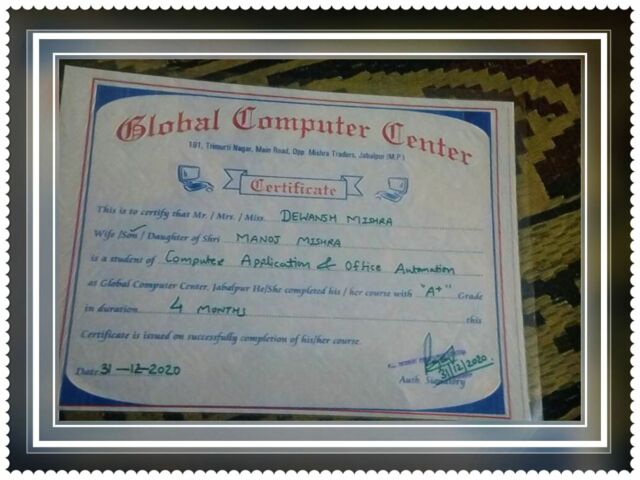 Global Computer Center
101, Trimurti Nagar, Main Road, Opp. Mishra Traders, Jabalpur (M.P.)
Certificate
This is to certify that Mr. / Mrs. / Miss. DEWANSH MISHRA
Wife /Son / Daughter of Shri MANOJ MISHRA
is a student of Computer Application & Office Automation
as Global Computer Center, Jabalpur He/She completed his / her course with "A+" Grade
in duration 4 MONTHS this
Certificate is issued on successfully completion of his/her course.
Date 31-12-2020
31/12/2020
Auth. Signatory